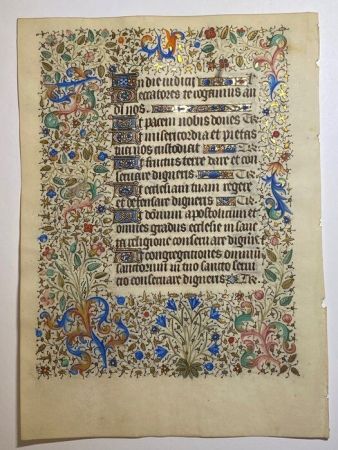 In die iudicii
Peccatores te rogamus au
di nos.
Ut pacem nobis dones Te R
Ut misericordia et pietas
tua nos custodiat Te R
Ut fructus terre dare et con
seruare digneris Te R
Ut ecclesiam tuam regere
et defensare digneris Te R
Ut domnum apostolicum et
omnes gradus ecclesie in sanc
ta religione conseruare digne
Ut congregationes omnium
sanctorum in tuo sancto serui
cio conseruare digneris Te R